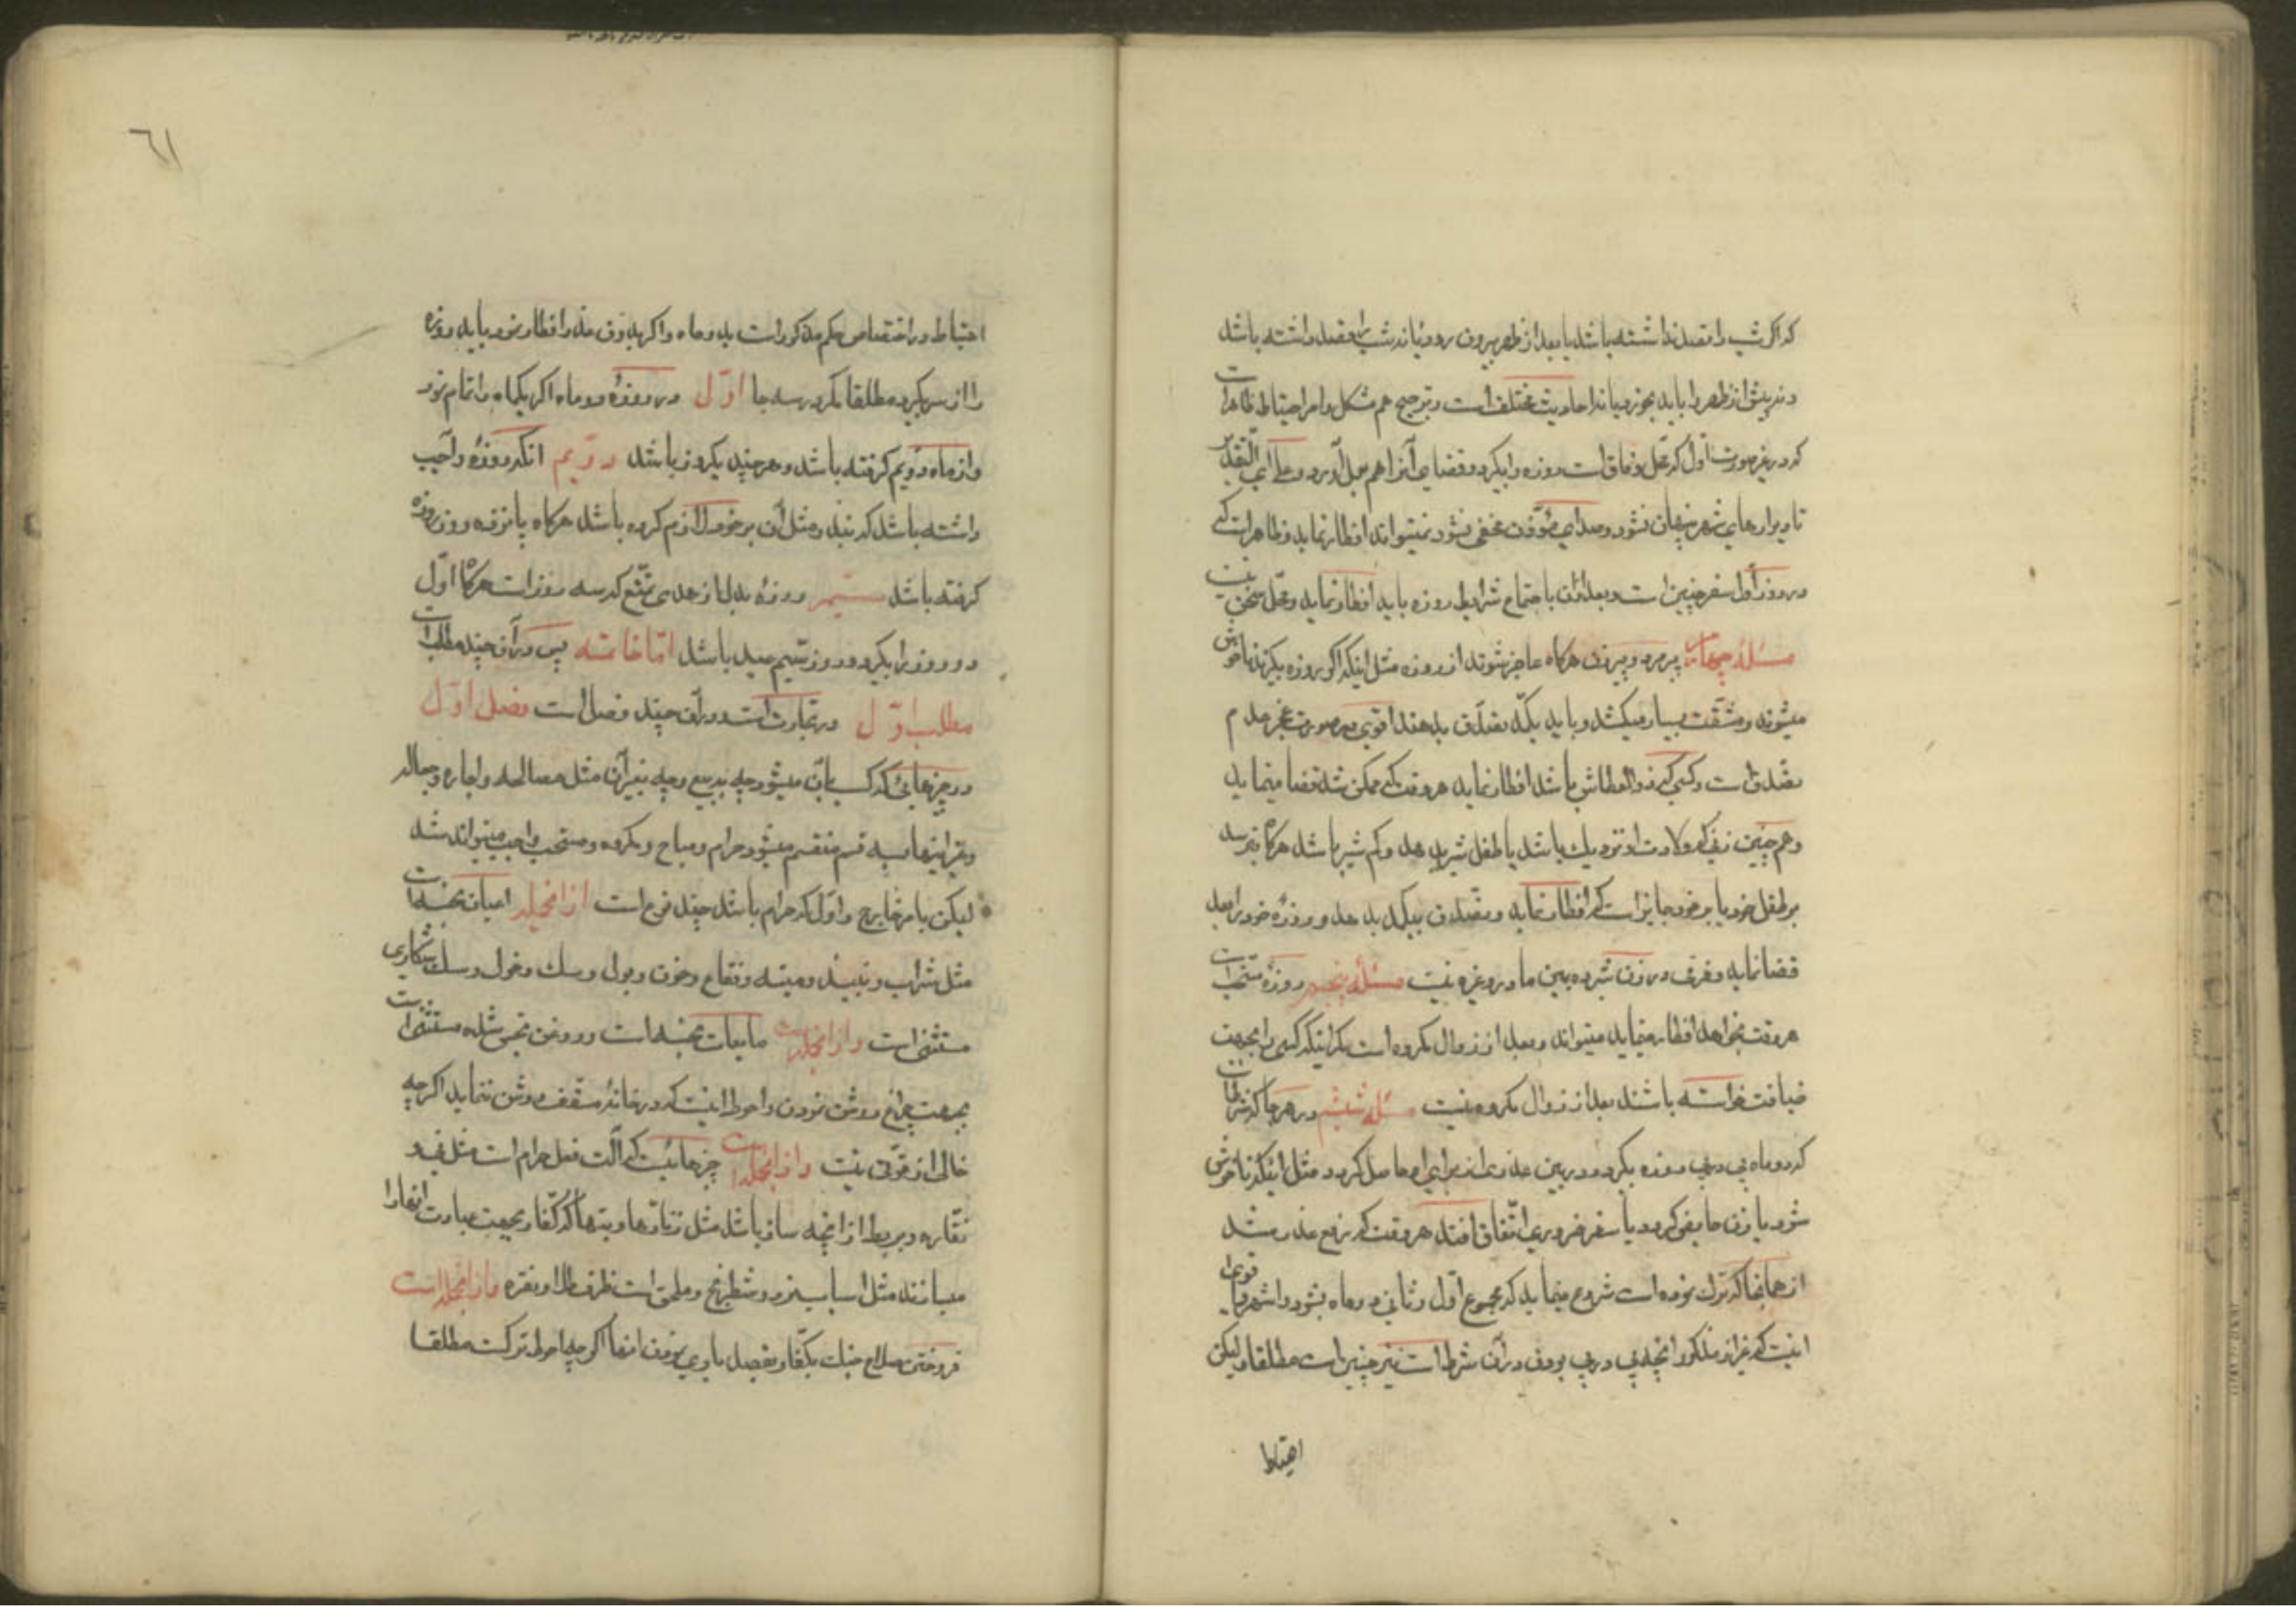 که اگر شب را قصد نداشته باشد یا بعد از ظهر بیرون رود یا نه شب را قصد داشته باشد
و نه پیش از ظهر را باید بخورد یا نه احادیث مختلف است و ترجیح هم مشکل و امر احتیاط ظاهرا
که در غیر صورت اول که محل وفاق است روزه را بگیرد و قضای آنرا هم بعمل آورد و علی ای التقدیر
تا دیوارهای شهر پنهان نشود و صدای مؤذن مخفی نشود نمیتواند افطار نماید و ظاهر است که
در روز اول سفر چنین است و بعد از آن با اجتماع شرایط روزه باید افطار نماید و محل سخن نیست
مسئله چهارم پیر مرد و پیر زن هرکاه عاجز شوند از روزه مثل اینکه اکر روزه بگیرند ناخوش
میشوند و مشقت بسیار میکشند و باید بکه تصدق بدهند اقوی در صورت عجز عدم
تصدق است و کسی که ذو العطاش باشد افطار نماید هر وقت که ممکن شد قضا مینماید
و هم چنین زنی که ولادت او نزدیك باشد یا طفل شیر بدهد و کم شیر باشد هرکاه بترسد
بر طفل خود یا بر خود جایز است که افطار نماید و تصدق بیکمد بدهد و روزهٔ خود را بعد
قضا نماید و فرق در زن شیرده بین مادر و غیره نیست مسئلهٔ پنجم روزهٔ مستحب است
هر وقت بخواهد افطار بنماید میتواند و بعد از زوال مکروه است مکر اینکه کسی را بجهت
ضیافت خواسته باشند بعد از زوال مکروه نیست مسئله ششم در هر جا که شرط است
که دو ماه پی در پی روزه بگیرد و در بین عذری از برای او حاصل کردد مثل اینکه ناخوش
شود یا زن حایض کردد یا سفر ضروری اتفاق افتد هر وقت که رفع عذر شد
از همانجا که ترك نموده است شروع مینماید که مجموع اول و ثانی دو ماه بشود و اشهر و اقوی
اینست که غیر از مذکور آنچه پی در پی بودن در آن شرط است نیز چنین است مطلقا و لیکن
احتیاط
٦١
احتیاط در اختصاص حکم مذکور است بدو ماه و اکر بدون عذر افطار نمود باید روزه
را از سر بگیرد مطلقا مکر در سه جا اوّل در روزهٔ دو ماه اکر یکماه را تمام نمود
و از ماه دویم کرفته باشد و هر چند یکروز باشد دویم آنکه روزهٔ واجب
داشته باشد که بنذر و مثل آن بر خود لازم کرده باشد هرکاه پانزده روز روزه
کرفته باشد سیم روزهٔ بدل از هدی تمتع که سه روز است هرکاه اوّل
دو روز را بگیرد و روز سیم عید باشد امّا خاتمه پس در آن چند مطلب است
مطلب اوّل در تجارت است و در آن چند فصل است فصل اوّل
در چیزهائی که کسب بآن میشود چه ببیع و چه بغیر آن مثل مصالحه و اجاره و جعاله
و غیر اینها بسه قسم منقسم میشود حرام و مباح و مکروه و مستحب و واجب میتواند شد
لیکن بامر خارج و اول که حرام باشد چند نوع است از آنجمله اعیان نجسه است
مثل شراب و نبیذ و میته و فقاع و خون و بول و سك و خوك و سك شکاری
مستثنی است و از آنجمله است مایعات نجسه است و روغن نجس شده مستثنی است
بجهت چراغ روشن نمودن و احوط اینست که در خانهٔ مسقف روشن ننماید اکرچه
خالی از قوّتی نیست و از آنجمله است چیزهائیست که آلت فعل حرام است مثل
نقاره و بربط از آنچه ساز باشد مثل زنارها و بتها که کفار بجهت عبادت آنها را
میسازند مثل اسباب نرد و شطرنج و ملحق است ظرف طلا و نقره و از آنجمله است
فروختن سلاح جنك بکفار بقصد یاری نمودن آنها اکرچه احوط ترکست مطلقا